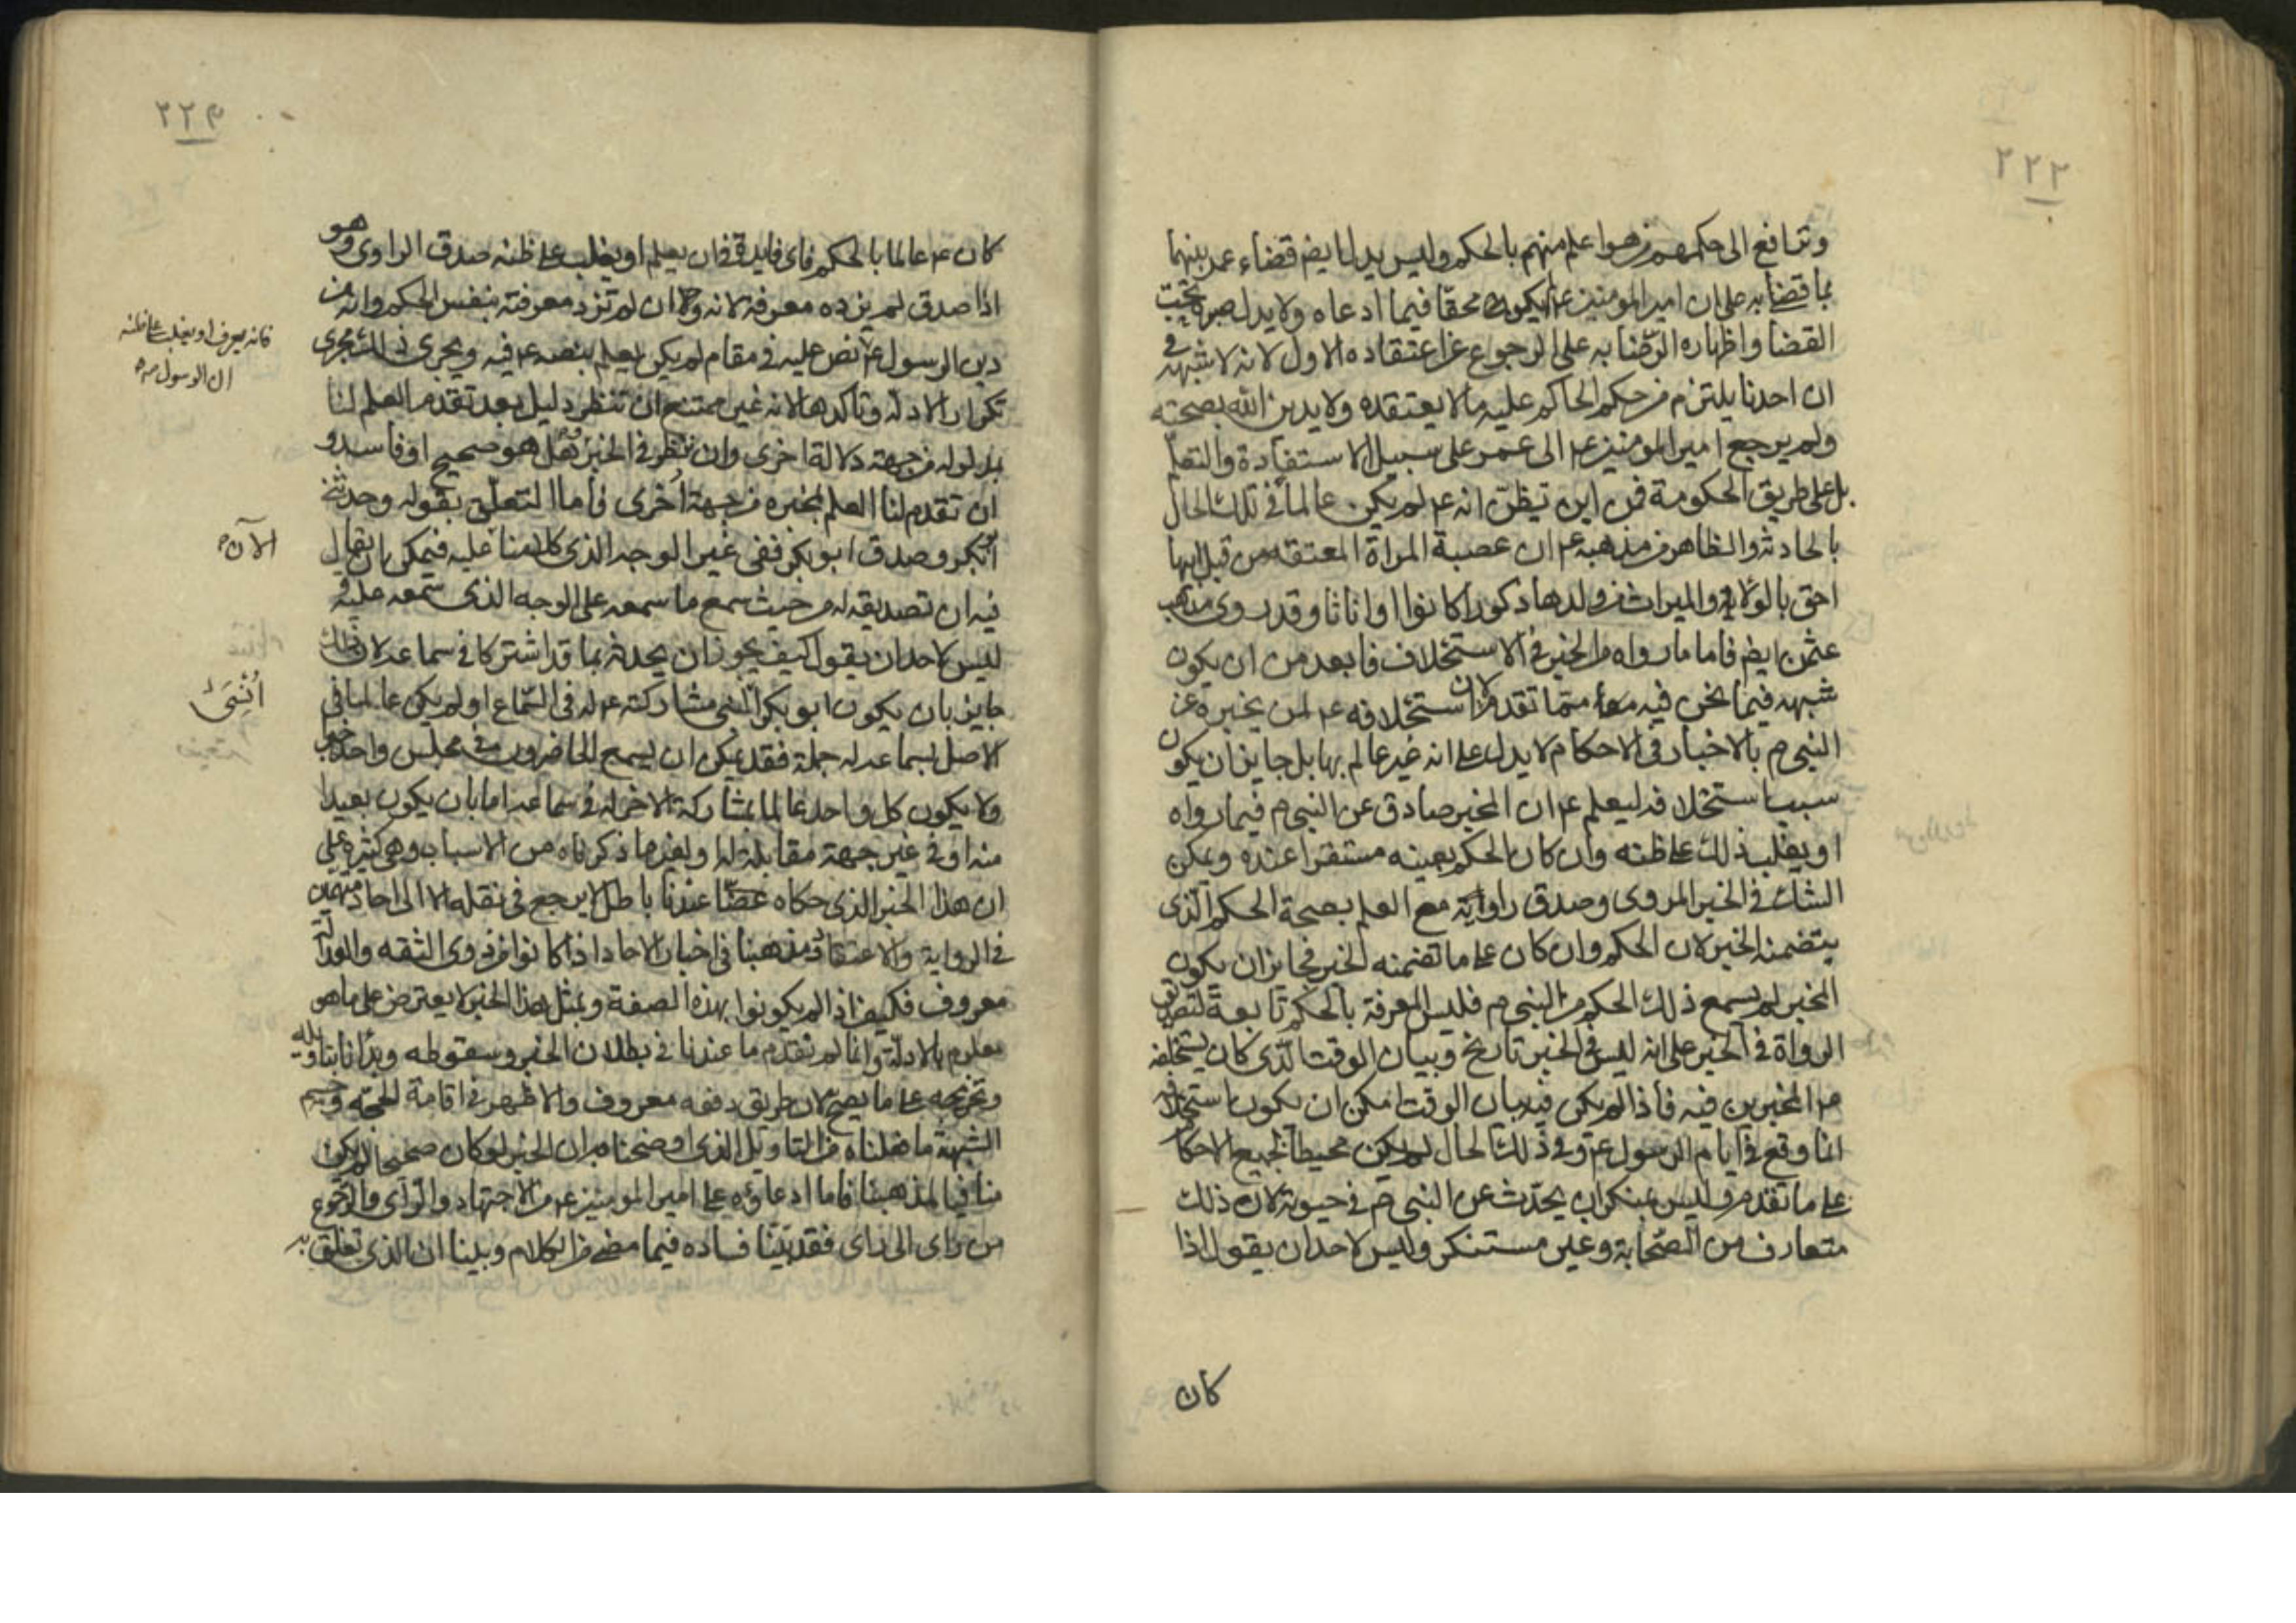 ٢٢٢
وترافع الى حكمهم من هو اعلم منهم بالحكم وليس يدل ايض قضاء عمر بينهما
بما قضا به على ان امير المومنين ع لم يكن محقا فيما ادعاه ولا يدل صبره تحت
القضا واظهاره الرضا به على الرجوع عن اعتقاده الاول لانه لا شبهة في
ان احدنا يلتزم من حكم الحاكم عليه ما لا يعتقده ولا يدين الله بصحته
ولم يرجع امير المومنين ع الى عمر على سبيل الاستفادة والتعلم
بل على طريق الحكومة فمن اين تيظن انه ع لم يكن عالما في تلك الحال
بالحادثة والظاهر من مذهبه ع ان عصبة المراة المعتقه من قبل ابيها
احق بالولاية والميراث من ولدها ذكورا كانوا او اناثا وقد روى مذهب
عثمن ايض فاما ما رواه من الخبر في الاستحلاف فابعد من ان يكون
شبهه فيما نحن فيه مما تقدم لان استحلافه ع لمن يخبره عن
النبي م بالاخبار في الاحكام لا يدل على انه غير عالم بها بل جايز ان يكون
سبب استحلافه ليعلم ع ان المخبر صادق عن النبي م فيما رواه
او يغلب ذلك على ظنه وان كان الحكم بعينه مستقرا عنده ويمكن
الشك في الخبر المروى وصدق راويه مع العلم بصحة الحكم الذى
يتضمنه الخبر لان الحكم وان كان على ما تضمنه الخبر فجايز ان يكون
المخبر لم يسمع ذلك الحكم من النبي م فليس المعرفة بالحكم تابعة لتصديق
الرواة في الخبر على انه ليس في الخبر تاريخ وبيان الوقت الذى كان يستحلفه
من المخبرين فيه فاذا لم يكن فيه بيان الوقت امكن ان يكون استحلافه
انما وقع في ايام الرسول ع وفي ذلك الحال لم يكن محيطا بجميع الاحكام
على ما تقدم وليس بمنكر ان يحدث عن النبي م في حيوته لان ذلك
متعارف من الصحابة وغير مستنكر وليس لاحد ان يقول اذا
كان
٢٢٣
كان ع عالما بالحكم فاى فايدة في ان يعلم او يغلب على ظنه صدق الراوى وهو
اذا صدق لم يزده معرفه لانه وان لم تزد معرفته بنفس الحكم وانه من
دين الرسول ع نص عليه في مقام لم يكن يعلم بنصه ع فيه ويجرى ذلك مجرى
تكرار الادلة وتاكدها لانه غير ممتنع ان تنظر دليل بعد تقدم العلم لنا
بمدلوله من جهة دلالة اخرى وان ننظر في الخبر هل هو صحيح او فاسد و
ان تقدم لنا العلم بمخبره من جهة اخرى فاما التعلق بقوله وحدثني
ابوبكر وصدق ابوبكر ففى غير الوجه الذى كلامنا عليه فيمكن ان يقال
فيه ان تصديقه له من حيث سمع ما سمعه على الوجه الذى سمعه عليه و
ليس لاحد ان يقول كيف يجوز ان يحدثه بما قد اشتركا في سماعه لان ذلك
جايز بان يكون ابوبكر انسى مشاركته ع له في السماع او لم يكن عالما في
الاصل بسماعه له جملة فقد يمكن ان يسمع الحاضرون في مجلس واحد خبرا
ولا يكون كل واحد عالما بمشاركة الاخر له في سماعه اما بان يكون بعيدا
منه او في غير جهة مقابلة له او لغير ما ذكرناه من الاسباب وهى كثيرة على
ان هذا الخبر الذى حكاه عندنا باطل لا يرجع في نقله الا الى احاد متهمين
في الرواية والاعتقاد ومذهبنا في اخبار الاحاد اذا كانوا من ذوى الثقه والعدالة
معروف فكيف اذا لم يكونوا بهذه الصفة وبمثل هذا الخبر لا يعترض على ما هو
معلوم بالادلة وانما لم نقدم ما عندنا في بطلان الخبر وسقوطه وبدانا بتاويله
وتخريجه على ما يصح لان طريق دفعه معروف والاظهر في اقامة الحجه وحسم
الشبهة ما فعلناه من التاويل الذى اوضحنا به ان الخبر لو كان صحيحا لم يكن
منافيا لمذهبنا فاما ادعاؤه على امير المومنين ع من الاجتهاد والراى والرجوع
من راى الى راى فقد بينا فساده فيما مضى من الكلام وبينا ان الذى تعلق به
فانه يعرف او يغلب على ظنه
ان الرسول ص
الان
أنسى